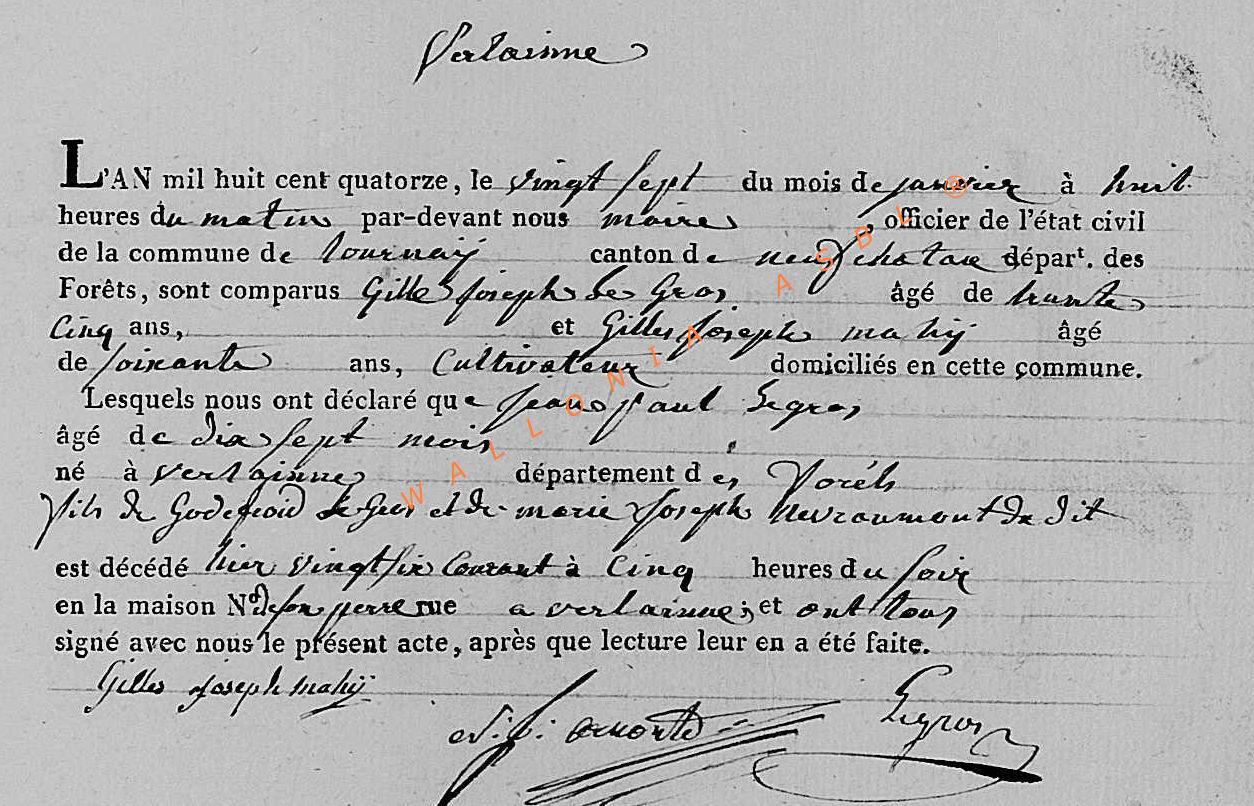 Verlainne
L'AN mil huit cent quatorze, le vingt sept du mois de janvier à huit
heures du matin par-devant nous maire, officier de l'état civil
de la commune de tournaÿ canton de neufchateau dépar.t des
Forêts, sont comparus Gille Joseph Le Gros âgé de trante
Cinq ans, et Gilles Joseph mahÿ âgé
de soixante ans, Cultivateur domiciliés en cette commune.
Lesquels nous ont déclaré que Jean paul Legros
âgé de dix sept mois
né à verlainne département des Foréts
fils de Godefroid Le Gros et de marie Joseph Nevraumont de dit
est décédé hier vingt six Courant à Cinq heures du soir
en la maison N.º de son perre rue a verlainne; et ont tous
signé avec nous le présent acte, après que lecture leur en a été faite.
Gilles Joseph Mahÿ
Legros
WALLONIA ASBL ®